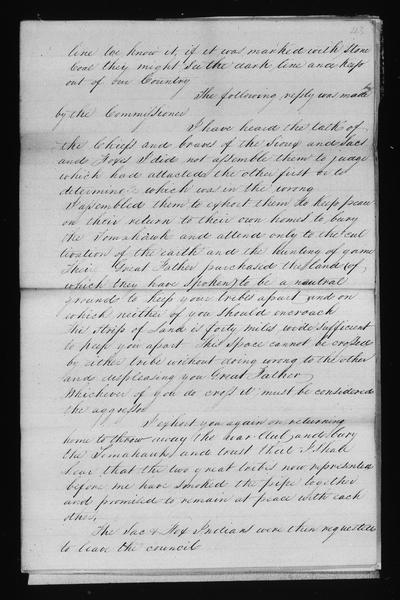 line we know it, if it was marked with stone
Coal they might see the dark line and keep
out of our Country
The following reply was made
by the Commissioner
I have heard the talk of
the Chiefs and braves of the Sioux and Sacs
and Foxes I did not assemble them to judge
which had attacked the other first or to
determine which was in the wrong
I assembled them to exhort them to keep peace
on their return to their own homes to bury
the Tomahawk and attend only to the cul
tivation of the earth and the hunting of game
Their Great Father purchased the land (of
which they have spoken) to be a neutral
ground to keep your tribes apart and on
which neither of you should encroach
the strip of Land is forty miles wide sufficient
to keep you apart This space cannot be crossed
by either tribe without doing wrong to the other
and displeasing you Great Father
Whichever of you do cross it must be considered
the aggressor
I exhort you again on returning
home to throw away the War Club, and bury
the Tomahawk, and trust that I shall
hear that the two great tribes now represented
before me have smoked the pipe together
and promised to remain at peace with each
other,
The Sac & Fox Indians were then requested
to leave the council